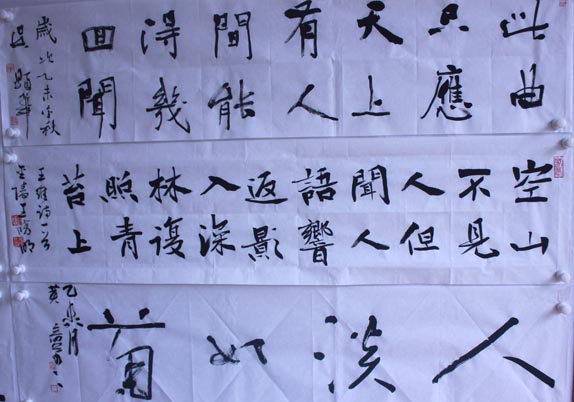 此曲
只應
天上
有人
間能
得幾
回聞
歲次乙未仲秋
空山
不見
人但
聞人
語響
返影
入深
林復
照青
苔上
王維詩一首
人淡如